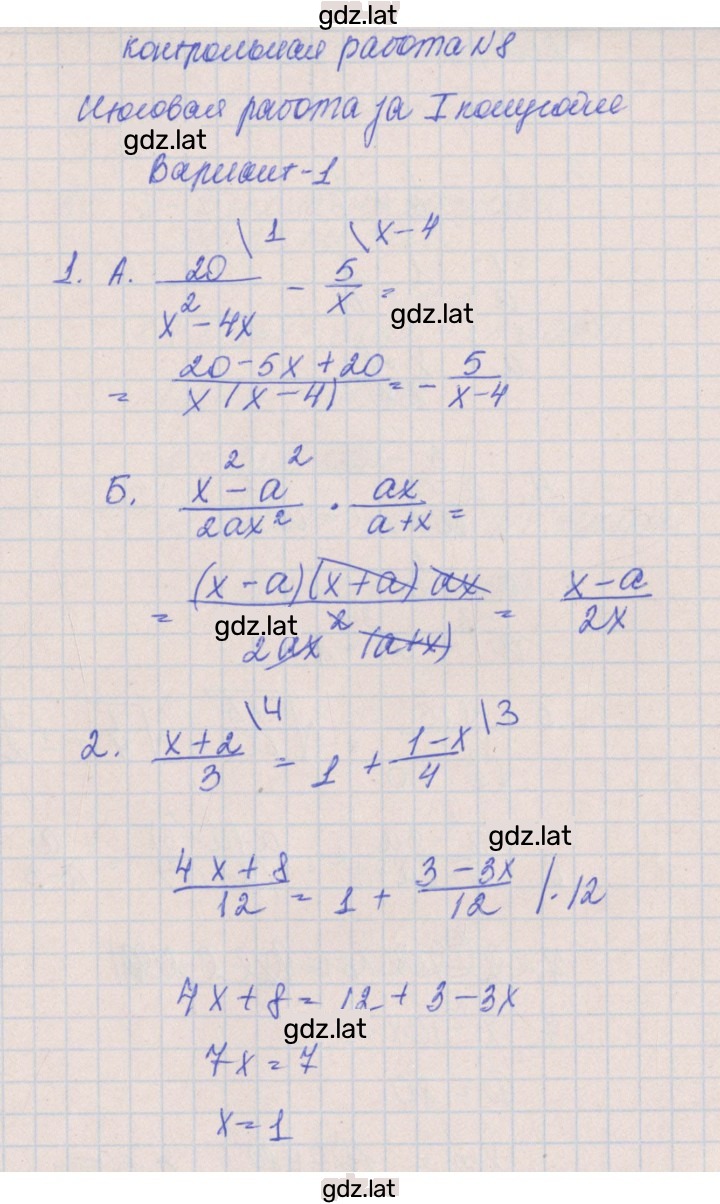 gdz.lat
контрольная работа N8
Итоговая работа за I полугодие
gdz.lat
Вариант-1
\1 \x-4
1. А. 20/(x²-4x) - 5/x =
gdz.lat
= (20-5x+20)/(x(x-4)) = - 5/(x-4)
Б. (x²-a²)/(2ax²) · ax/(a+x) =
= (x-a)(x+a)ax/(2ax²(a+x)) = (x-a)/(2x)
gdz.lat
\4 \3
2. (x+2)/3 = 1 + (1-x)/4
gdz.lat
(4x+8)/12 = 1 + (3-3x)/12 /·12
4x+8 = 12 + 3-3x
gdz.lat
7x = 7
x = 1
gdz.lat